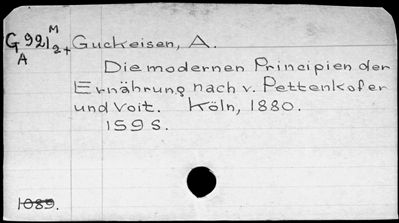 G 921 M/2+ Guckeisen, A.
A
Die modernen Principien der
Ernährung nach v. Pettenkofer
und Voit. Köln, 1880.
159 S.
1089.